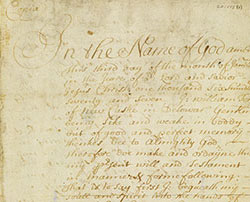 In the Name of God amen
this third day of the month of
in the yeare of our Lord and Savior
Jesus Christ one thousand six hundred
seventy and seven I William
of New Castle in Delowar
being sike and weake in boddy
but of good and perfect memory
thankes bee to Almighty God
therefore doe make and ordayne this
my present will and testament
in manner & forme following
that is to say first I bequeath my
soule and spirit into the hands of